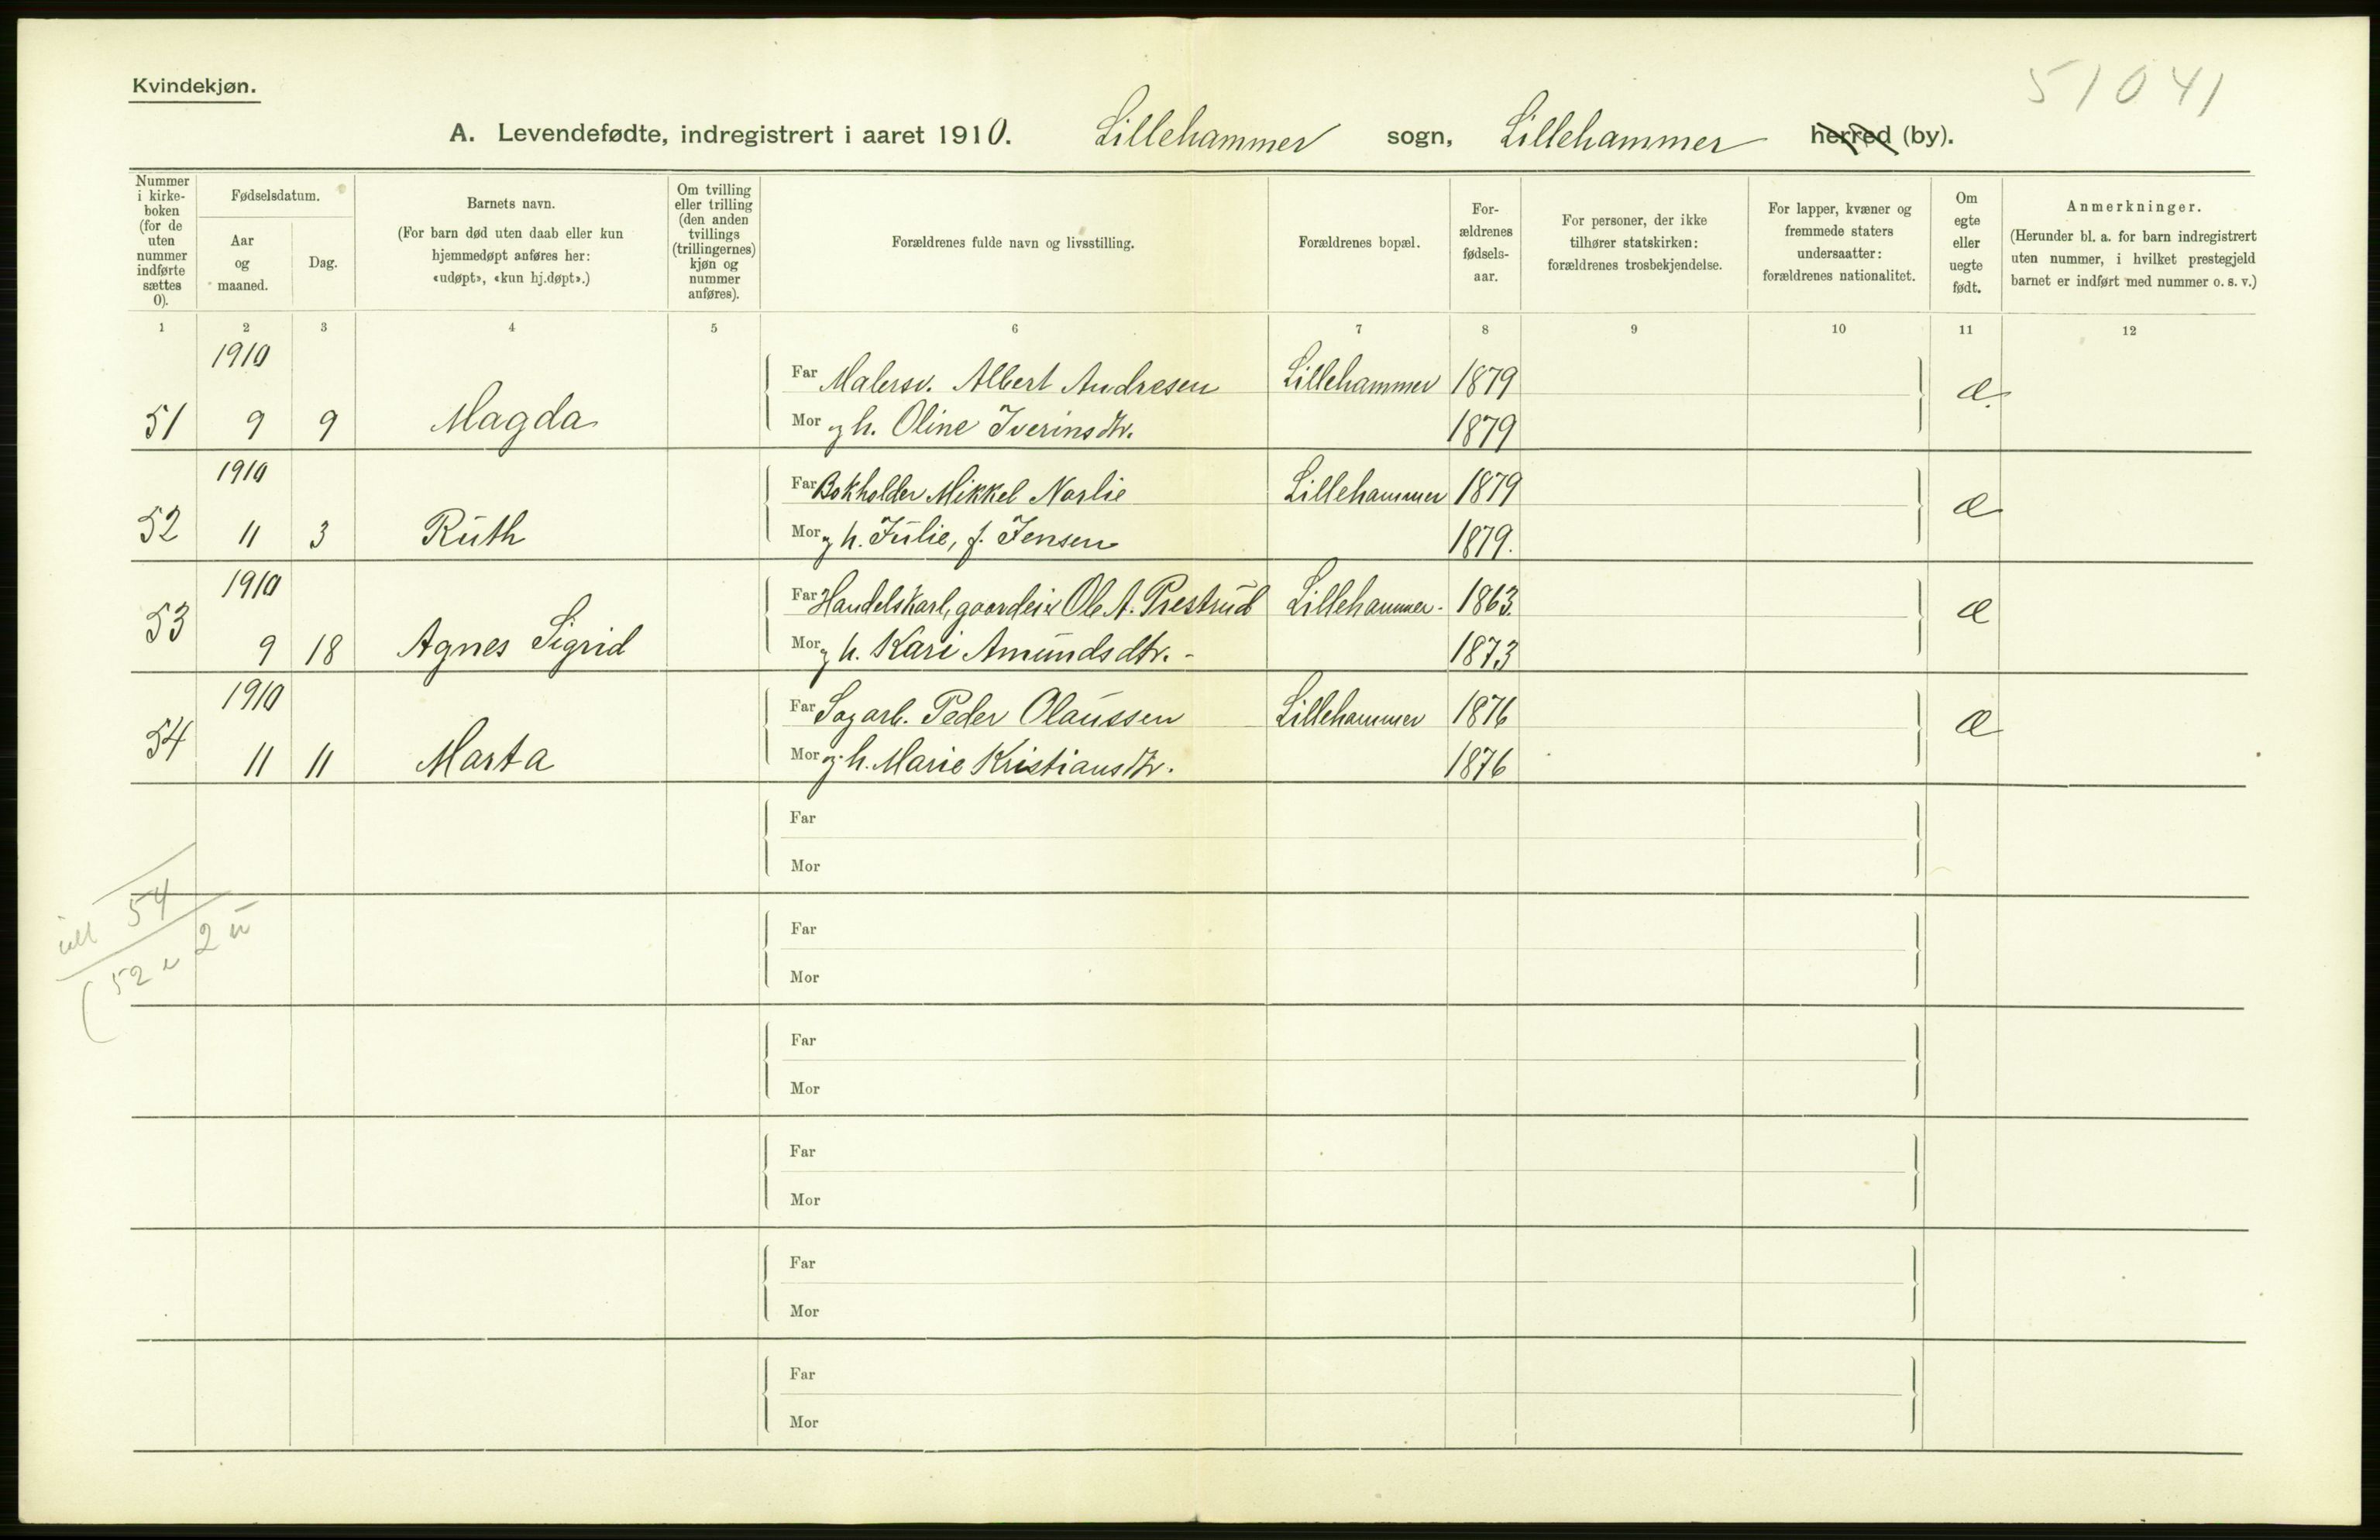 Kvindekjøn.
51041
A. Levendefødte, indregistrert i aaret 1910. Lillehammer sogn, Lillehammer herred (by).
Nummer i kirkeboken (for de uten nummer indførte sættes 0).
Fødselsdatum.
Aar og maaned.
Dag.
Barnets navn.
(For barn død uten daab eller kun hjemmedøpt anføres her: «udøpt», «kun hj.døpt».)
Om tvilling eller trilling (den anden tvillings (trillingernes) kjøn og nummer anføres).
Forældrenes fulde navn og livsstilling.
Forældrenes bopæl.
Forældrenes fødselsaar.
For personer, der ikke tilhører statskirken: forældrenes trosbekjendelse.
For lapper, kvæner og fremmede staters undersaatter: forældrenes nationalitet.
Om egte eller uegte født.
Anmerkninger.
(Herunder bl. a. for barn indregistrert uten nummer, i hvilket prestegjeld barnet er indført med nummer o. s. v.)
1 2 3 4 5 6 7 8 9 10 11 12
1910
Far Malersv. Albert Andresen Lillehammer 1879 æ.
51 9 9 Magda Mor og h. Oline Iverinsdtr. 1879
1910
Far Bokholder Mikkel Norlie Lillehammer 1879 æ
52 11 3 Ruth Mor og h. Julie, f. Jensen 1879.
1910
Far Handelskarl, gaardeier Ole A. Prestrud Lillehammer. 1863. æ
53 9 18 Agnes Sigrid Mor og h. Kari Amundsdtr. - 1873
1910
Far Sagarb. Peder Olaussen Lillehammer 1876 æ
54 11 11 Marta Mor og h. Marie Kristiansdtr. 1876
Far
Mor
54
Far
52 2 u
Mor
Far
Mor
Far
Mor
Far
Mor
Far
Mor